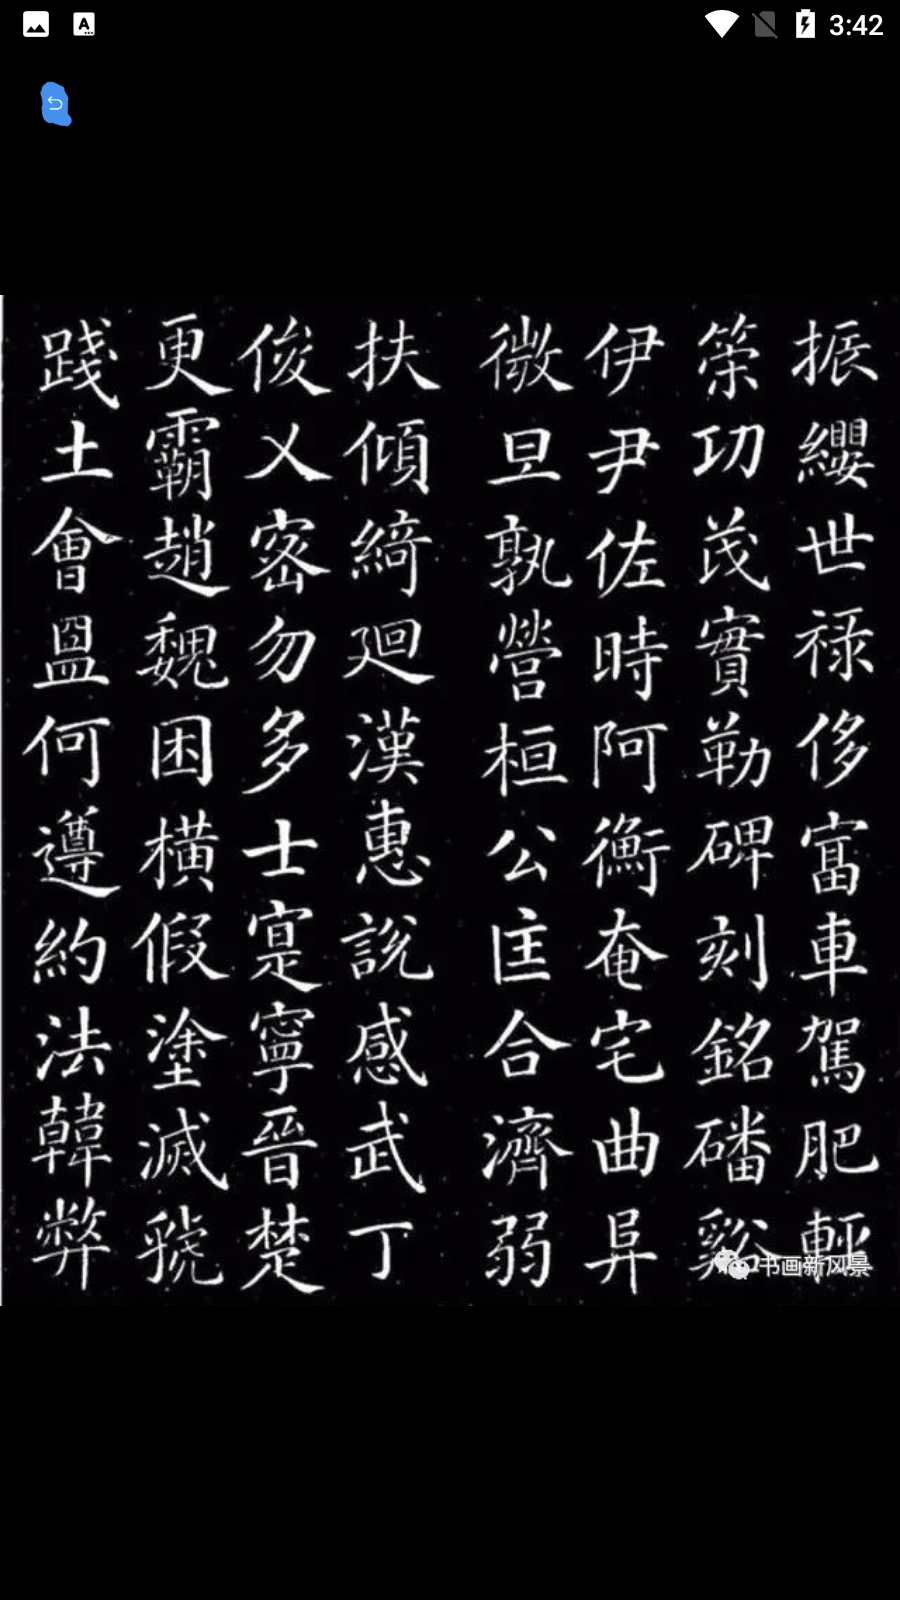 3:42
振纓世禄侈富車駕肥輕
策功茂實勒碑刻銘磻谿
伊尹佐時阿衡奄宅曲阜
微旦孰營桓公匡合濟弱
扶傾綺迴漢惠說感武丁
俊乂密勿多士寔寧晉楚
更霸趙魏困橫假塗滅虢
踐土會盟何遵約法韓弊
书画新风景